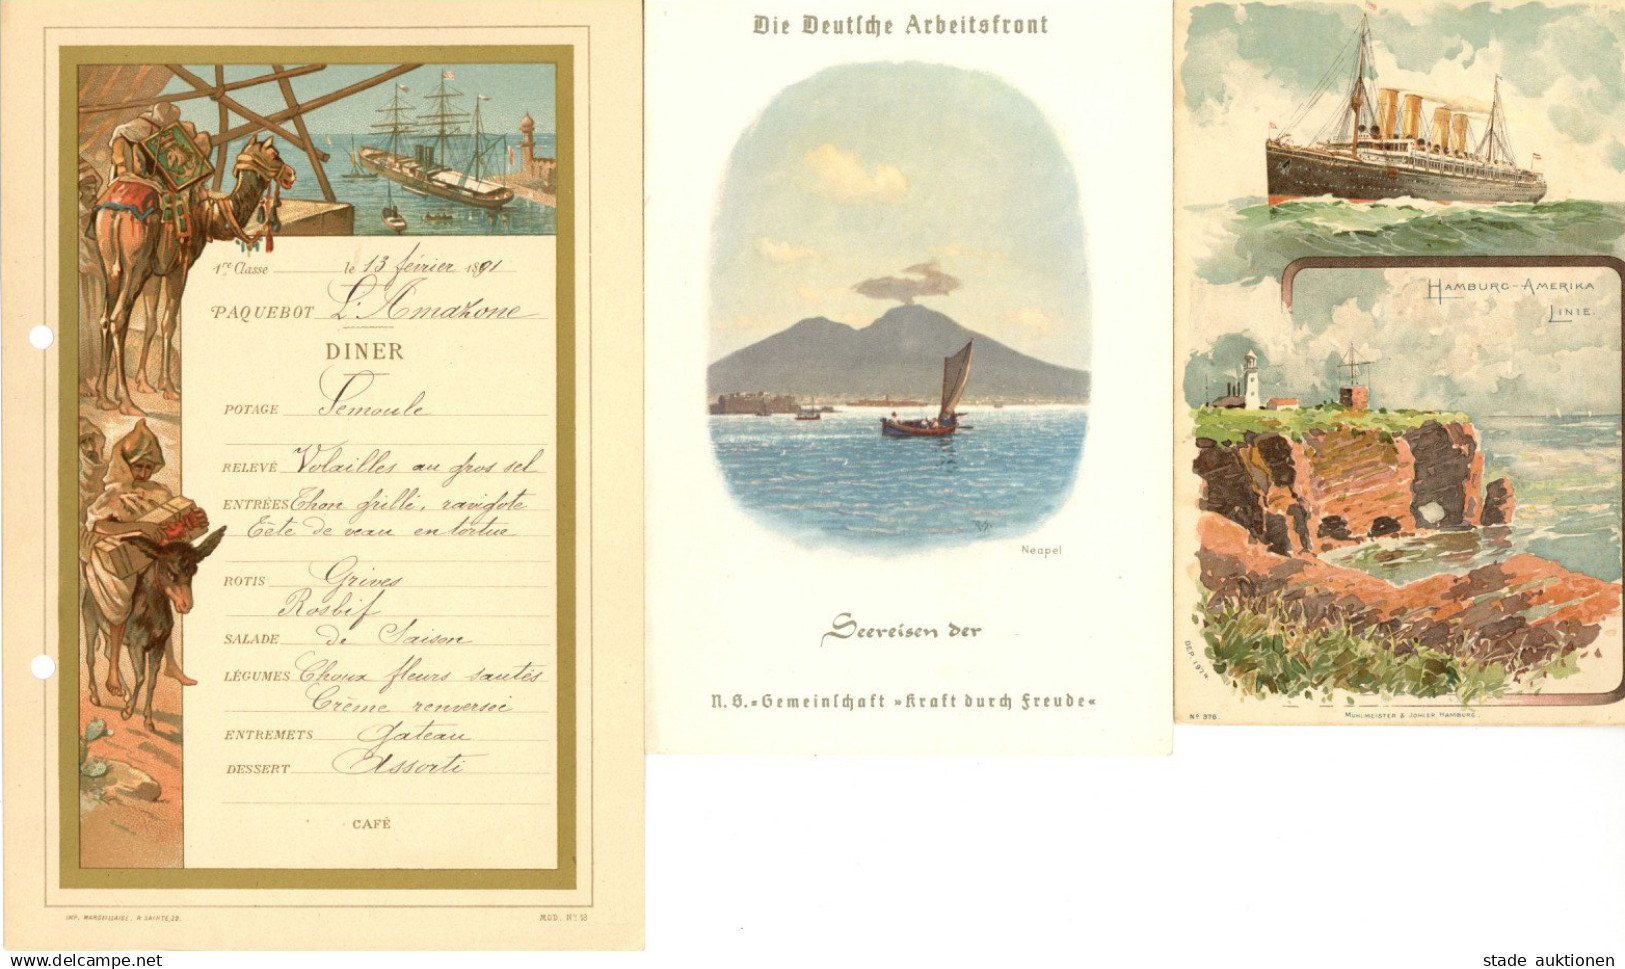 1re Classe le 13 février 1891
PAQUEBOT L'Amazone
DINER
POTAGE Semoule
RELEVÉ Volailles au gros sel
ENTRÉES Thon grillé, ravigote
Tête de veau en tortue
ROTIS Grives
Rosbif
SALADE de Saison
LÉGUMES Choux fleurs sautés
Crème renversée
ENTREMETS Gateau
DESSERT Assorti
CAFÉ
IMP. MARSEILLAISE, R. SAINTE, 39.
MOD. No 18
Die Deutsche Arbeitsfront
Neapel
Seereisen der
N.S.=Gemeinschaft »Kraft durch Freude«
HAMBURG-AMERIKA
LINIE.
No 376.
MÜHLMEISTER & JOHLER, HAMBURG.
delcampe.net
stade auktionen